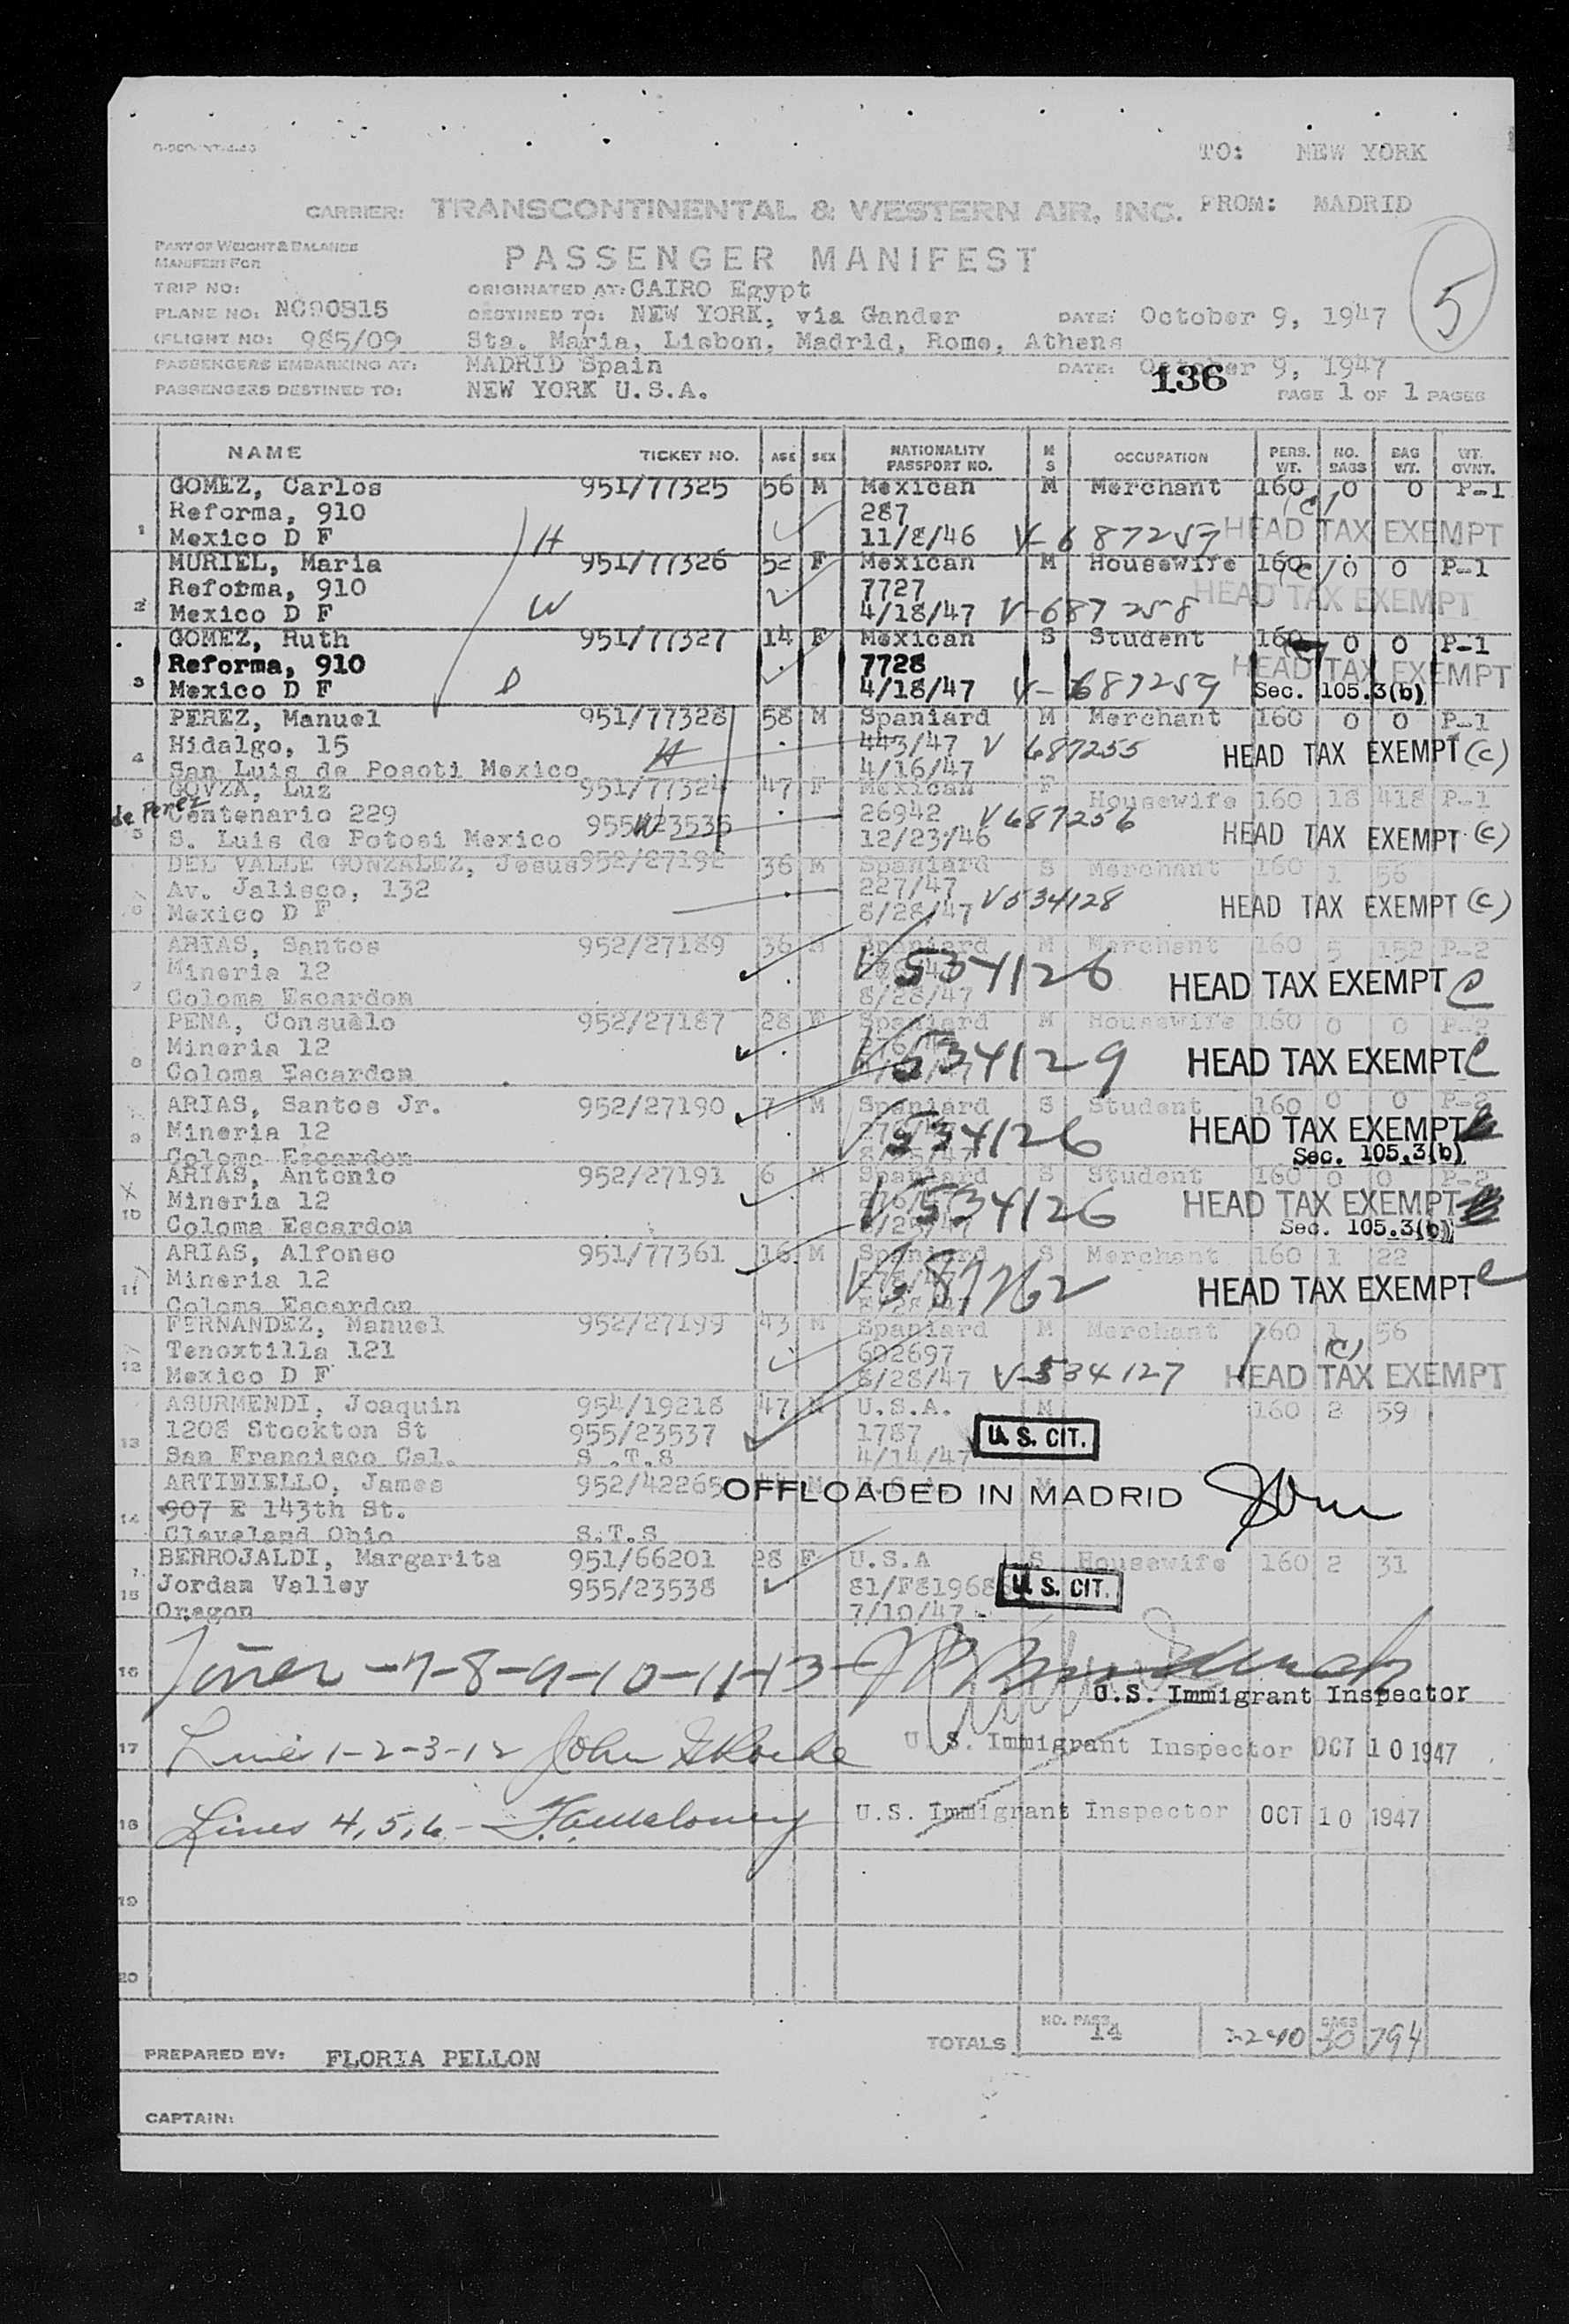 TO: NEW YORK
CARRIER: TRANSCONTINENTAL & WESTERN AIR, INC. FROM: MADRID
PART OF WEIGHT & BALANCE
MANIFEST FOR
PASSENGER MANIFEST
5
TRIP NO: ORIGINATED AT: CAIRO Egypt
PLANE NO: NC90815 DESTINED TO: NEW YORK, via Gander DATE: October 9, 1947
FLIGHT NO: 985/09 Sta. Maria, Lisbon, Madrid, Rome, Athens
PASSENGERS EMBARKING AT: MADRID Spain DATE: October 9, 1947
136
PASSENGERS DESTINED TO: NEW YORK U.S.A. PAGE 1 OF 1 PAGES
NAME TICKET NO. AGE SEX NATIONALITY PASSPORT NO. M S OCCUPATION PERS. WT. NO. BAGS BAG WT. WT. CVNT.
GOMEZ, Carlos 951/77325 56 M Mexican M Merchant 160 0 0 P-1
Reforma, 910 287 (c)
1 Mexico D F H 11/8/46 V-687257 HEAD TAX EXEMPT
MURIEL, Maria 951/77326 52 F Mexican M Housewife 160 0 0 P-1
Reforma, 910 7727 (c)
2 Mexico D F W 4/18/47 V-687258 HEAD TAX EXEMPT
GOMEZ, Ruth 951/77327 14 F Mexican S Student 160 0 0 P-1
Reforma, 910 7728 HEAD TAX EXEMPT
3 Mexico D F D 4/18/47 V-687259 Sec. 105.3(b)
PEREZ, Manuel 951/77328 58 M Spaniard M Merchant 160 0 0 P-1
4 Hidalgo, 15 H 443/47 V 687255 HEAD TAX EXEMPT (c)
San Luis de Posoti Mexico 4/16/47
GOVZA, Luz 951/77324 47 F Mexican F Housewife 160 18 418 P-1
de Perez Centenario 229 955/23536 W 26942 V687256
5 S. Luis de Potosi Mexico 12/23/46 HEAD TAX EXEMPT (c)
DEL VALLE GONZALEZ, Jesus 952/27192 36 M Spaniard S Merchant 160 1 56
Av. Jalisco, 132 227/47
6 Mexico D F 8/28/47 V534128 HEAD TAX EXEMPT (c)
ARIAS, Santos 952/27189 36 M Spaniard M Merchant 160 5 152 P-2
Mineria 12 V534126 HEAD TAX EXEMPT C
7 Coloma Escardon 8/28/47
PENA, Consuelo 952/27187 28 F Spaniard M Housewife 160 0 0 P-2
Mineria 12 V534129 HEAD TAX EXEMPT C
8 Coloma Escardon
ARIAS, Santos Jr. 952/27190 7 M Spaniard S Student 160 0 0 P-2
9 Mineria 12 V534126 HEAD TAX EXEMPT
Coloma Escardon Sec. 105.3(b)
ARIAS, Antonio 952/27191 6 M Spaniard S Student 160 0 0 P-2
10 Mineria 12 V534126 HEAD TAX EXEMPT
Coloma Escardon Sec. 105.3(b)
ARIAS, Alfonso 951/77361 16 M Spaniard S Merchant 160 1 22
11 Mineria 12 V687262 HEAD TAX EXEMPT c
Coloma Escardon
FERNANDEZ, Manuel 952/27199 43 M Spaniard M Merchant 160 1 56
Tenoxtilla 121 602697 (c)
12 Mexico D F 8/28/47 V-534127 HEAD TAX EXEMPT
ASURMENDI, Joaquin 954/19218 47 M U.S.A. M 160 2 59
1208 Stockton St 955/23537 1787 U.S. CIT.
13 San Francisco Cal. S.T.S 4/14/47
ARTIEIELLO, James 952/42265 M U.S.A. M OFFLOADED IN MADRID
14 907 E 143th St.
Cleveland Ohio S.T.S
BERROJALDI, Margarita 951/66201 28 F U.S.A S Housewife 160 2 31
15 Jordan Valley 955/23538 U.S. CIT.
Oregon 7/10/47
16 Lines -7-8-9-10-11-13-
U.S. Immigrant Inspector
17 Lines 1-2-3-12 John U.S. Immigrant Inspector OCT 10 1947
18 Lines 4,5,6 - U.S. Immigrant Inspector OCT 10 1947
19
20
TOTALS NO. PASS. 14 2240 BAGS 30 794
PREPARED BY: FLORIA PELLON
CAPTAIN: